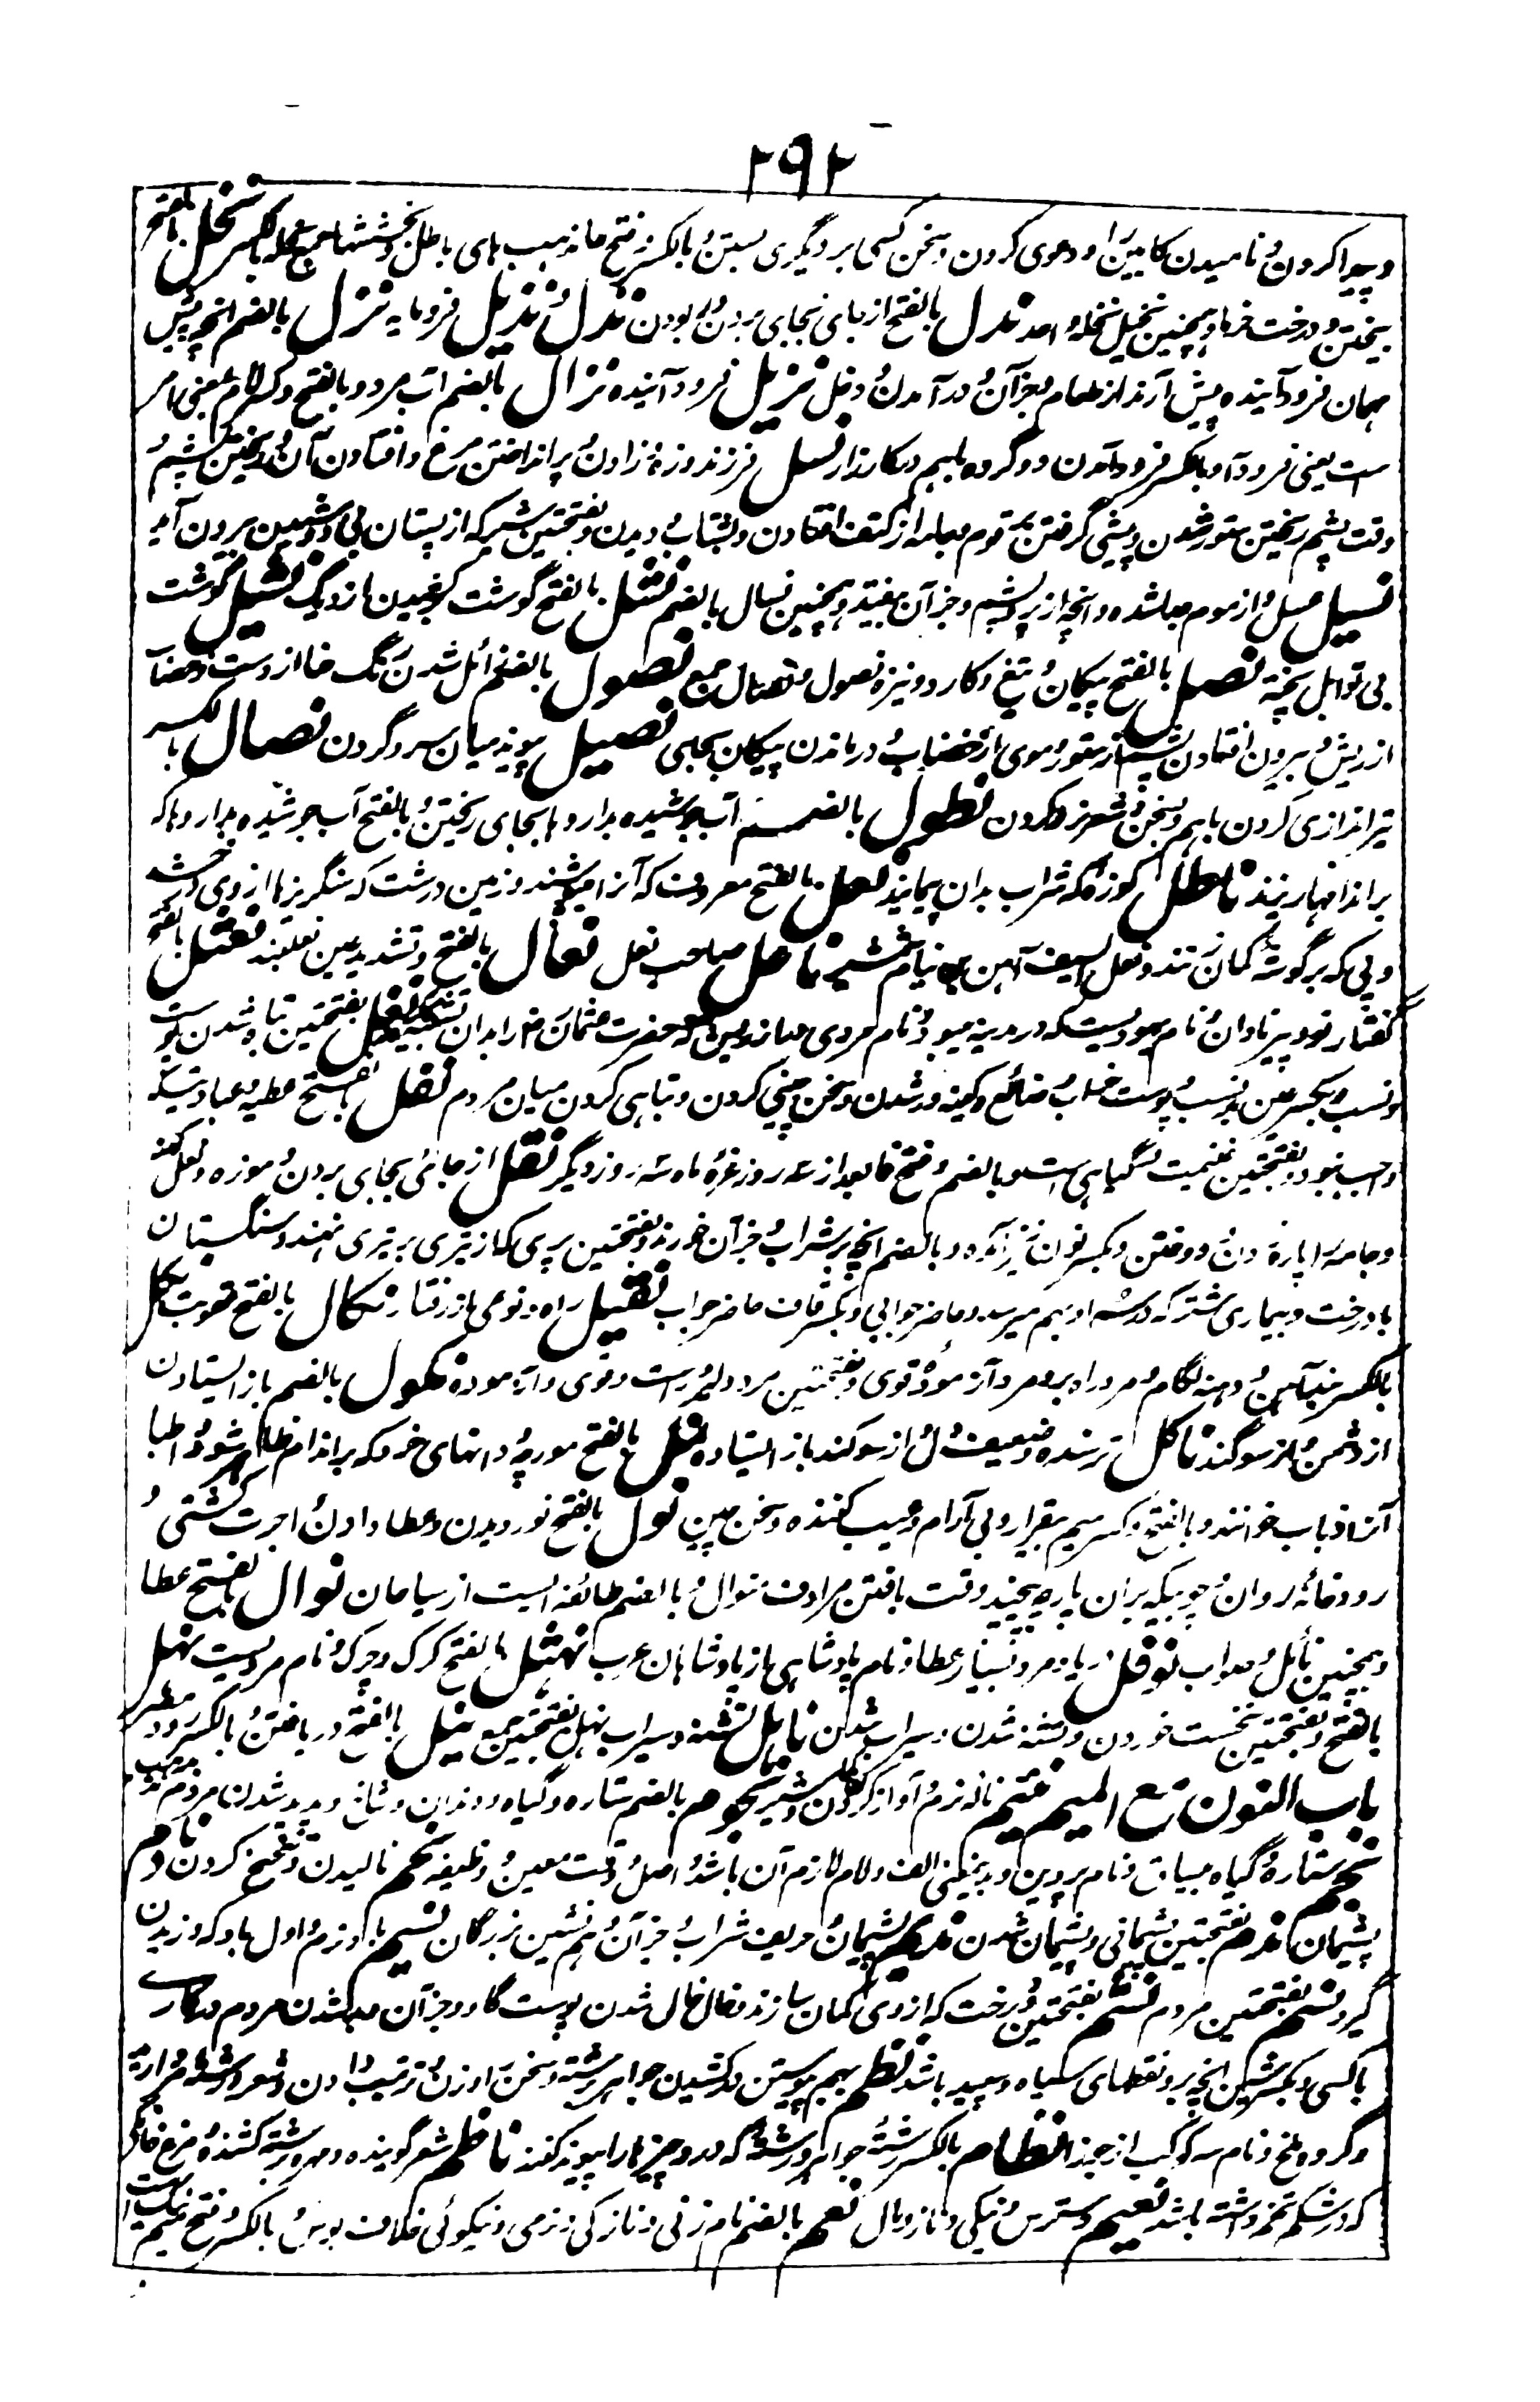 ۲۹۲
و پیدا کردن و نامیدن کابین را و دعوی کردن و سخن کسی بر دیگری بستن و بالکسر و فتح حا مذهب های باطل و بخششها جمع نحله بالکسر نخل بالفتح
بیختن و درخت خرما و همچنین نخیل نخله واحد ندل بالفتح از جای بجای بردن و ربودن نذل و نذیل فرومایه نزل بالضم انچه پیش
مهمان فرود آینده پیش آرند از طعام و جز آن و در آمدن و دخل نزیل فرود آینده نزال بالضم آب مرد و بالفتح و کسر لام بمعنی امر
است یعنی فرود آ و بالکسر فرود آمدن دو گروه بهم در کارزار نسل فرزند و زه و زادن و پر انداختن مرغ و افتادن آن و ریختن پشم و
وقت پشم ریختن ستور شدن و پیشی گرفتن بر قوم جامه از کتف افتادن و بشتاب دویدن و بفتحتین شیر که از پستان بی دوشیدن بیرون آید
نسیل عسل از موم جدا شده و انچه از پر و پشم و جز آن بیفتد و همچنین نسال بالضم نشل بالفتح گوشت کوفتیدن از دیگ نشیل گوشت
بی توابل پخته نصل بالفتح پیکان و تیغ و کارد و نیزه نصول و نصال جمع نصول بالضم زائل شدن رنگ حنا از دست و خضاب
از ریش و بیرون افتادن پشم از ستور و موی از خضاب و در ماندن پیکان بجای نصیل پیوند میان سر و گردن نصال بالکسر
تیراندازی کردن باهم و بسخن و شعر نبرد کردن نطول بالضم آب جوشیده بداروها بجای ریختن و بالفتح آب جوشیده بداروها که
بر اندامها ریزند ناطل کوزه که شراب بدان پیمایند نعل بالفتح معروف که آنرا میپوشند و زمین درشت که سنگریزها از وی درخشد
و پی که بر گوشه کمان تنند و نعل السیف آهن بن نیام شمشیر ناعل صاحب نعل نعال بالفتح و تشدید عین نعلبند نعثل بالفتح
کفتار نر و پیر نادان و نام یهودیست که در مدینه میبود و نام مردی دراز ریش که حضرت عثمان را بدان تشبیه میکردند نغل بفتحتین تباه شدن پوست
و نسب و بکسر غین بد نسب و پوست خراب و ضائع و کینه ور شدن و سخن چینی کردن و تباهی کردن میان مردم نفل بالفتح عطیه و عبادتیکه
واجب نبود و بفتحتین غنیمت و گیاهی ست و بالضم و فتح فا بعد از سه روز غره ماه سه روز دیگر نقل از جائی بجای بردن و موزه و نعل کهنه
و جامه پاره و آن دوختن و بکسر نون نیز آمده و بالضم انچه بر شراب و جز آن خورند و بفتحتین پری که از تیری بر تیری نهند و سنگستان
با درخت و بیماری شتر که در سم او بهم میرسد و حاضر جوابی و بکسر قاف حاضر جواب نقیل راه و نوعی از رفتار نکال بالفتح عقوبت نکل
بالکسر بند آهن و دهنه لگام و مرد راه برو مرد آزموده و قوی و بفتحتین مرد دلیر و راست و قوی و آزموده نکول بالضم باز ایستادن
از دشمن و از سوگند ناکل ترسنده و ضعیف دل از سوگند باز ایستاده نمل بالفتح مورچه و دانهای خرد که بر اندام ظاهر شود و اطبا
آنرا ذباب خوانند و بالفتح و کسر میم بیقرار و بی آرام و عیب کننده و سخن چین نول بالفتح نوردیدن و عطا دادن و اجرت کشتی و
رودخانه روان و چوبیکه بر آن پارچه پیچند وقت بافتن مرادف منوال و بالضم طائفه ایست از سیاهان نوال بالفتح عطا
و همچنین نائل و صواب نوفل دریا و مرد بسیار عطا و نام پادشاهی از پادشاهان عرب نهشل بالفتح گرک و چرک و نام مردیست نهل
بالفتح و بفتحتین نخست خوردن و تشنه شدن و سیراب شدن ناهل تشنه و سیراب نهل بفتحتین جمع نیل بالفتح دریافتن و بالکسر رود مصر
باب النون مع المیم نئیم ناله نرم و آواز کردن کمان و شیر نجوم بالضم ستاره و گیاه و دندان و شاخ و پدید شدن نا مردم
نجم ستاره و گیاه بیساق و نام پروین و بدینمعنی الف و لام لازم آن باشد و اصل و وقت معین و وظیفه نحم نالیدن و تنحنح کردن نادم
پشیمان ندم بفتحتین پشیمانی و پشیمان شدن ندیم پشیمان و حریف شراب و جز آن و هم نشین بزرگان نسیم باد نرم و اول باد که وزیدن
گیرد نسم بفتحتین مردم نشم بفتحتین درخت که از وی کمان سازند و خال خال شدن پوست گاو و جز آن و بد شدن مردم در کاری
با کسی و بکسر شین انچه بر و نقطهای سیاه و سپید باشد نظم بهم پیوستن و در کشیدن جواهر در رشته و سخن را وزن و ترتیب دادن و شعر و رشته مروارید
و گروه ملخ و نام سه کوکب از جوزا نظام بالکسر رشته جواهر و رشته که در و چیزها را پیوند کنند ناظم شعر گوینده و مهره در رشته کشنده و مرغ خانگی
که در شکم تخم داشته باشد نعیم دسترس و نیکی و ناز و مال نعم بالضم نام زنی و نازکی و نرمی و نیکوئی خلاف بؤس و بالکسر و فتح میم نیک است